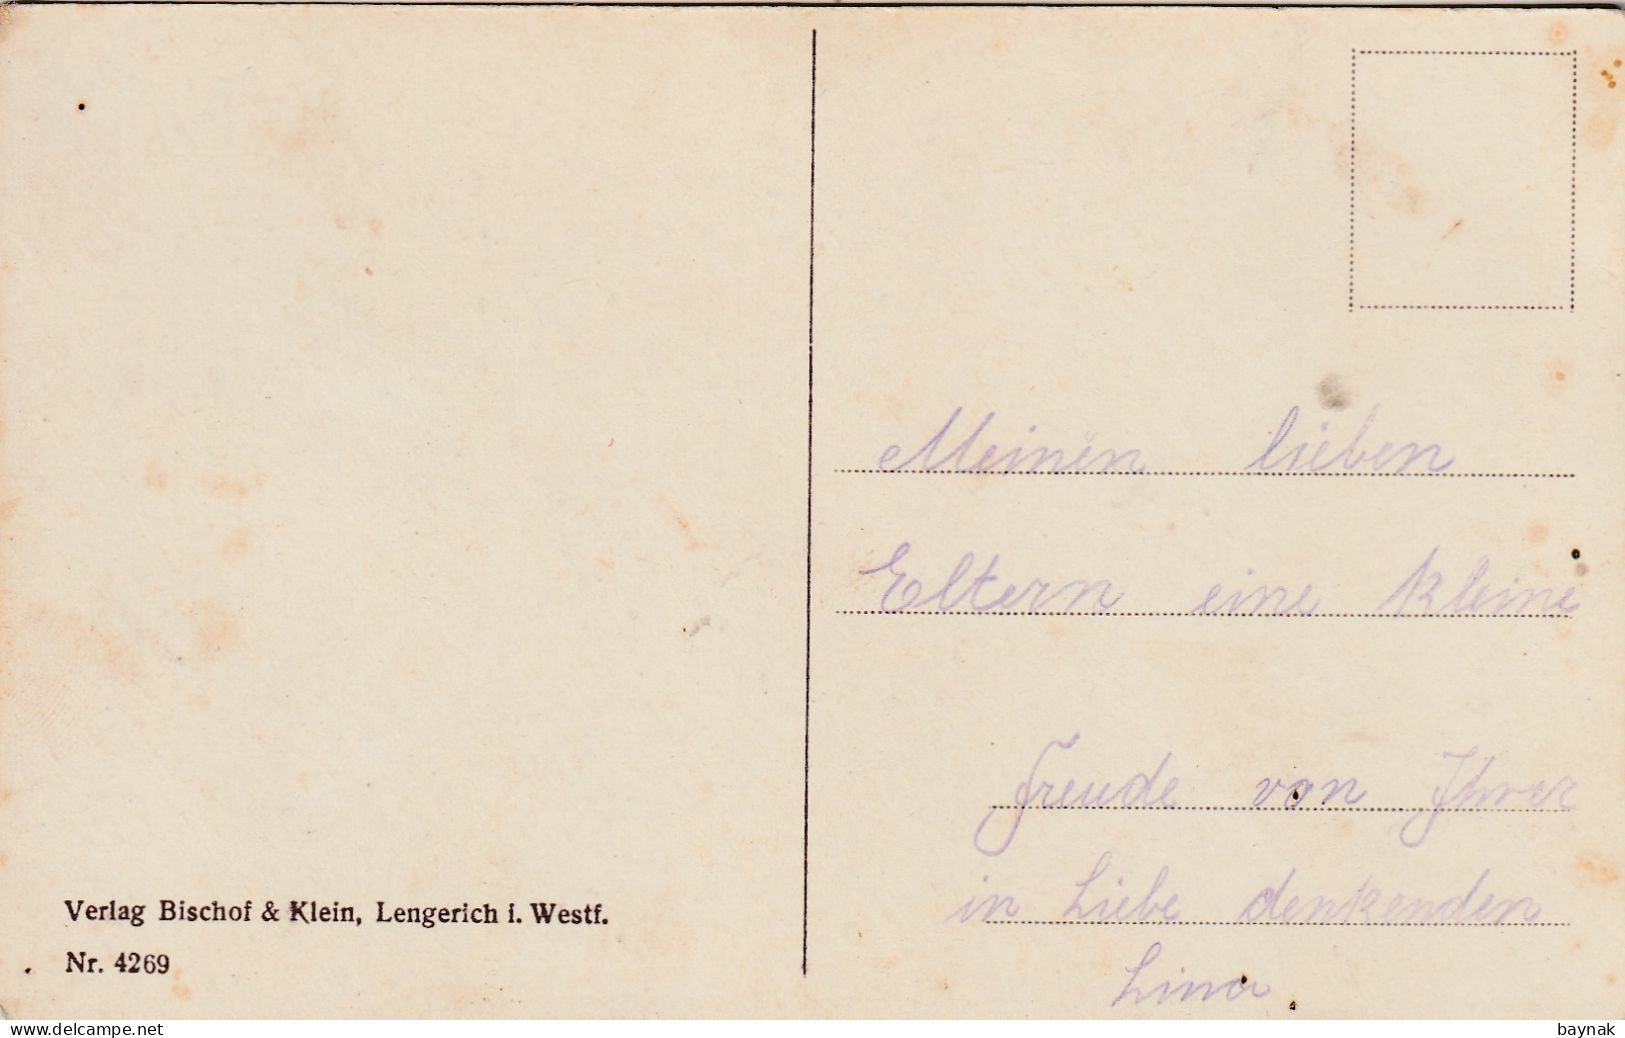 Verlag Bischof & Klein, Lengerich i. Westf.
Nr. 4269
Meinen lieben
Eltern eine kleine
Freude von Ihrer
in Liebe denkenden
Lina
delcampe.net
baynak